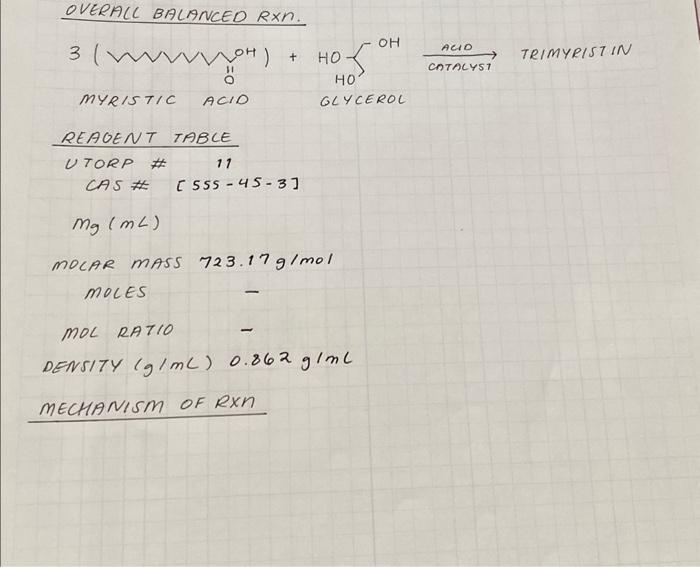 OVERALL BALANCED RXN.
3 ( OH ) + HO OH ACID TRIMYRISTIN
O HO CATALYST
MYRISTIC ACID GLYCEROL
REAGENT TABLE
UTORP # 11
CAS # [555-45-3]
Mg (mL)
MOLAR MASS 723.17 g/mol
MOLES -
MOL RATIO -
DENSITY (g/mL) 0.862 g/mL
MECHANISM OF RXN